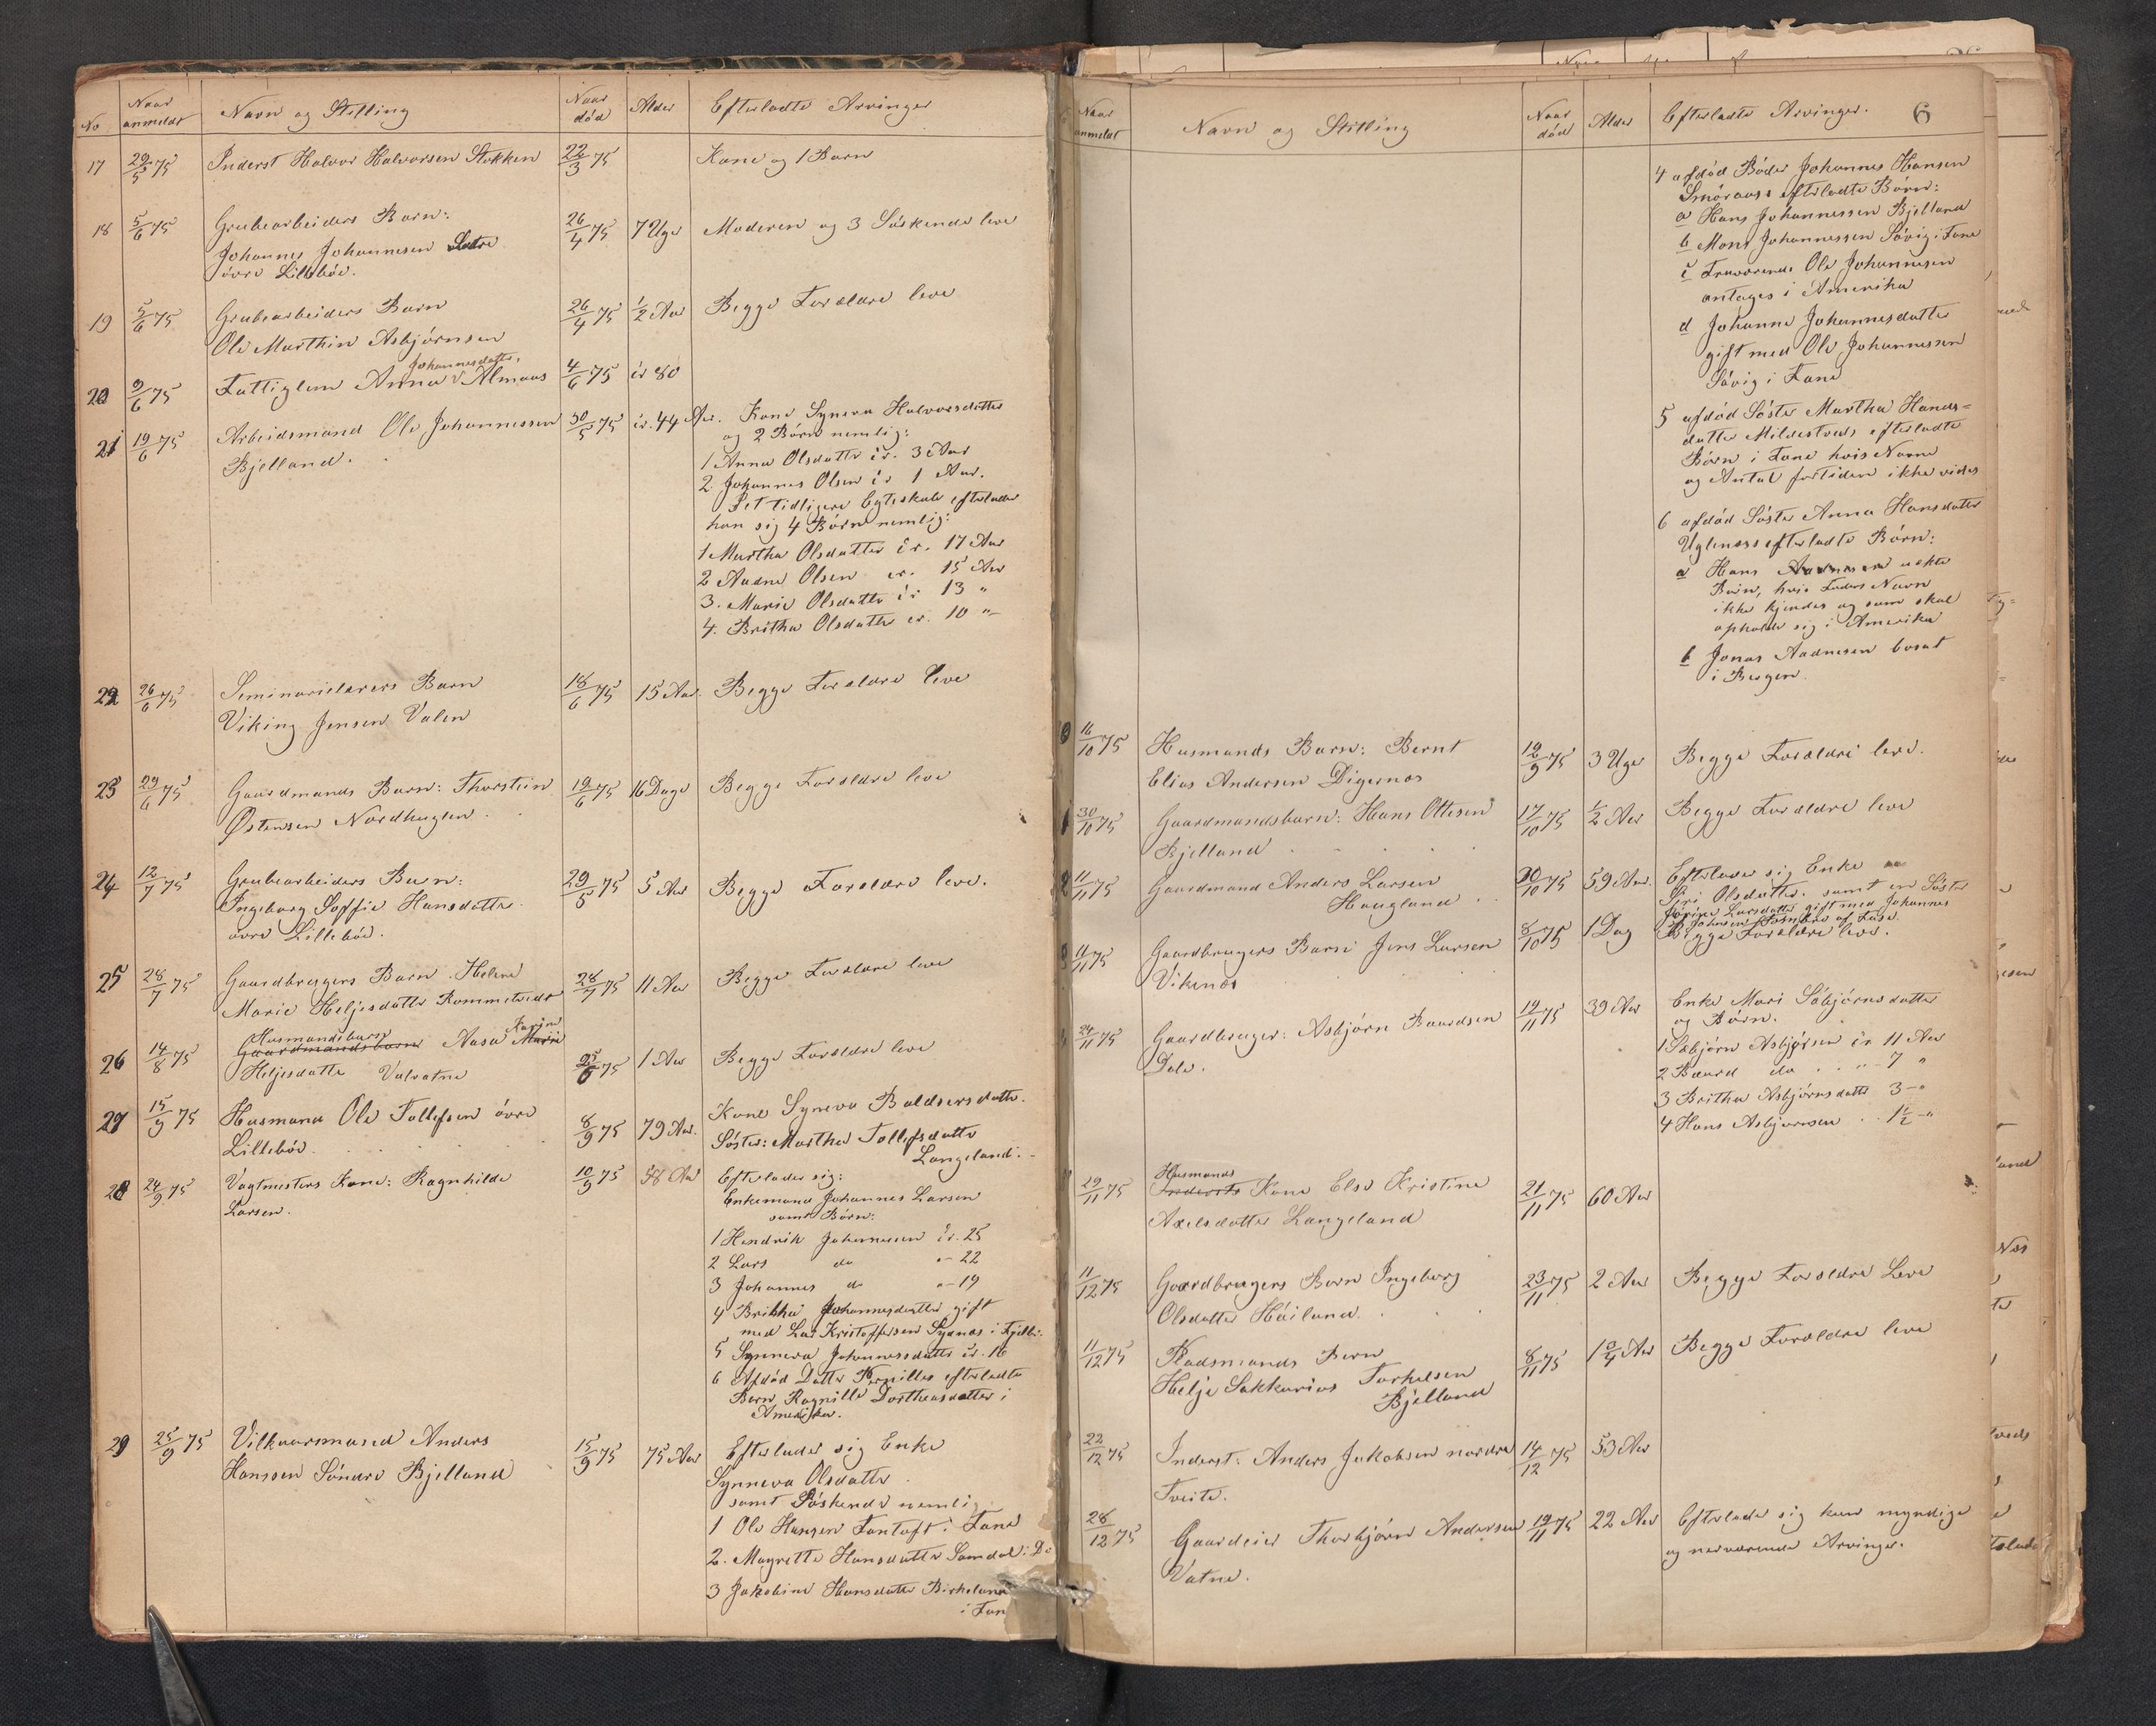 No
Naar anmeldt
Navn og Stilling
Naar død
Alder
Efterladte Arvinger
17 29/5 75 Inderst Halvor Halvorsen Stokken 22/3 75 Kone og 1 Barn
18 5/6 75 Grubearbeiders Barn: 26/4 75 7 Uger Moderen og 3 Söskende leve
Johannes Johannesen
övre Lillebö.
19 5/6 75 Grubearbeiders Barn 26/4 75 1/2 Aar Begge Forældre leve
Ole Marthin Asbjörnsen
Johannesdatter
20 9/6 75 Fattiglem Anna Almaas 4/6 75 ir 80
21 19/6 75 Arbeidsmand Ole Johannessen 30/5 75 ir. 44 Aar. Kone Syneva Halvorsdatter
Bjelland. og 2 Börn nemlig:
1 Anna Olsdatter ir. 3 Aar
2. Johannes Olsen ir 1 Aar.
I et tidligere Egteskab efterlader
han sig 4 Börn nemlig:
1 Martha Olsdatter ir. 17 Aar
2 Aadne Olsen ir. 15 Aar
3. Marie Olsdatter ir 13 "
4. Britha Olsdatter ir. 10 "
22 26/6 75 Seminarielærers Barn 18/6 75 15 Aar. Begge Forældre leve
Viking Jensen Valen
23 29/6 75 Gaardmands Barn: Thorstein 19/6 75 16 Dage Begge Forældre leve
Østensen Nordhuglen.
24 12/7 75 Grubearbeiders Barn: 29/5 75 5 Aar Begge Forældre leve.
Ingeborg Soffie Hansdatter
övre Lillebö.
25 28/7 75 Gaardbrugers Barn Helene 24/7 75 11 Aar Begge Forældre leve
Marie Heljesdatter Rommetvedt
Husmandsbarn Karine
26 14/8 75 Gaardmandsbarn Aasa Marie 75 1 Aar Begge Forældre leve
Heljesdatter Valvatne
27 15/9 75 Husmand Ole Tollefsen övre 8/9 75 79 Aar. Kone Syneva Baldsersdatter.
Lillebö. Söster: Martha Tollefsdatter
Langeland.
28 24/9 75 Vagtmesters Kone: Ragnhilde 10/9 75 58 Aar Efterlader sig:
Larsen. Enkemand Johannes Larsen
samt Börn:
1 Hendrik Johannesen ir. 25
2 Lars do " 22
3 Johannes do " 19
4 Britha Johannesdatter gift
med Lar Kristoffersen Sydnæs i
5 Synneva Johannesdatter ir. 16
6 Afdöd Datter Pernilles efterladte
Barn Ragnille Dortheasdatter i
Amerika.
29 25/9 75 Vilkaarsmand Anders 15/9 75 75 Aar Efterlader sig Enke
Hanssen Söndre Bjelland Synneva Olsdatter
samt Söskende nemlig
1 Ole Hansen Fantoft i Fane
2. Magrette Hansdatter Samdal i
3 Jakobine Hansdatter Birkeland
i Fan
Naar anmeldt
Navn og Stilling
Naar død
Alder
Efterladte Arvinger.
6
4 afdöd Broder Johannes Hansen
Smöraas efterladte Börn:
a Hans Johannessen Bjelland
b Mons Johannessen Sövig i Fane
c Fraværende Ole Johannesen
antages i Amerika
d Johanne Johannesdatter
gift med Ole Johannessen
Sövig i Fane
5 afdöd Söster Martha Hans=
datter Mildestveds efterladte
Börn i Fane hvis Navne
og Antal fortiden ikke vides
6 afdöd Söster Anna Hansdatter
Uglenæs efterladte Börn:
a Hans uekte
Barn, hvis Faders Navn
ikke kjendes og som skal
opholde sig i Amerika
b Jonas Aadnesen bosat
i Bergen.
16/10 75 Husmands Barn: Bernt 19/9 75 3 Uger Begge Forældre leve.
Elias Andersen Digernæs
30/10 75 Gaardmandsbarn: Hans Ottesen 17/10 75 1/2 Aar Begge Forældre leve
Bjelland
11/11 75 Gaardmand Anders Larsen 20/10 75 59 Aar. Efterlader sig Enke
Haugland Siri Olsdatter. samt en Söster
Larsdatter gift med Johannes
11/11 75 Gaardbrugers Barn: Jens Larsen 8/10 75 1 Dag Begge Forældre leve.
Vikenes
24/11 75 Gaardbruger: Asbjörn Baardsen 19/11 75 39 Aar Enke Mari Sæbjörnsdatter
Dale. og Börn.
1 Sæbjörn Asbjörnsen ir 11 Aar
2 Baard do " 7 "
3 Britha Asbjörnsdatter 3 "
4 Hans Asbjörnsen 1 1/2 "
Husmands
29/11 75 Inderst Kone Else Kristine 21/11 75 60 Aar
Axelsdatter Langeland
11/12 75 Gaardbrugers Barn Ingeborg 23/11 75 2 Aar Begge Forældre Leve
Olsdatter Höiland.
11/12 75 Pladsmands Barn 8/11 75 1 3/4 Aar Begge Forældre leve
Helje Sakkarias Torkelsen
Bjelland
22/12 75 Inderst: Anders Jakobsen nordre 14/12 75 53 Aar
Tveite.
28/12 75 Gaardeier Thorbjörn Andersen 19/11 75 22 Aar Efterlader sig kun myndige
Vatne. og nærværende Arvinger.